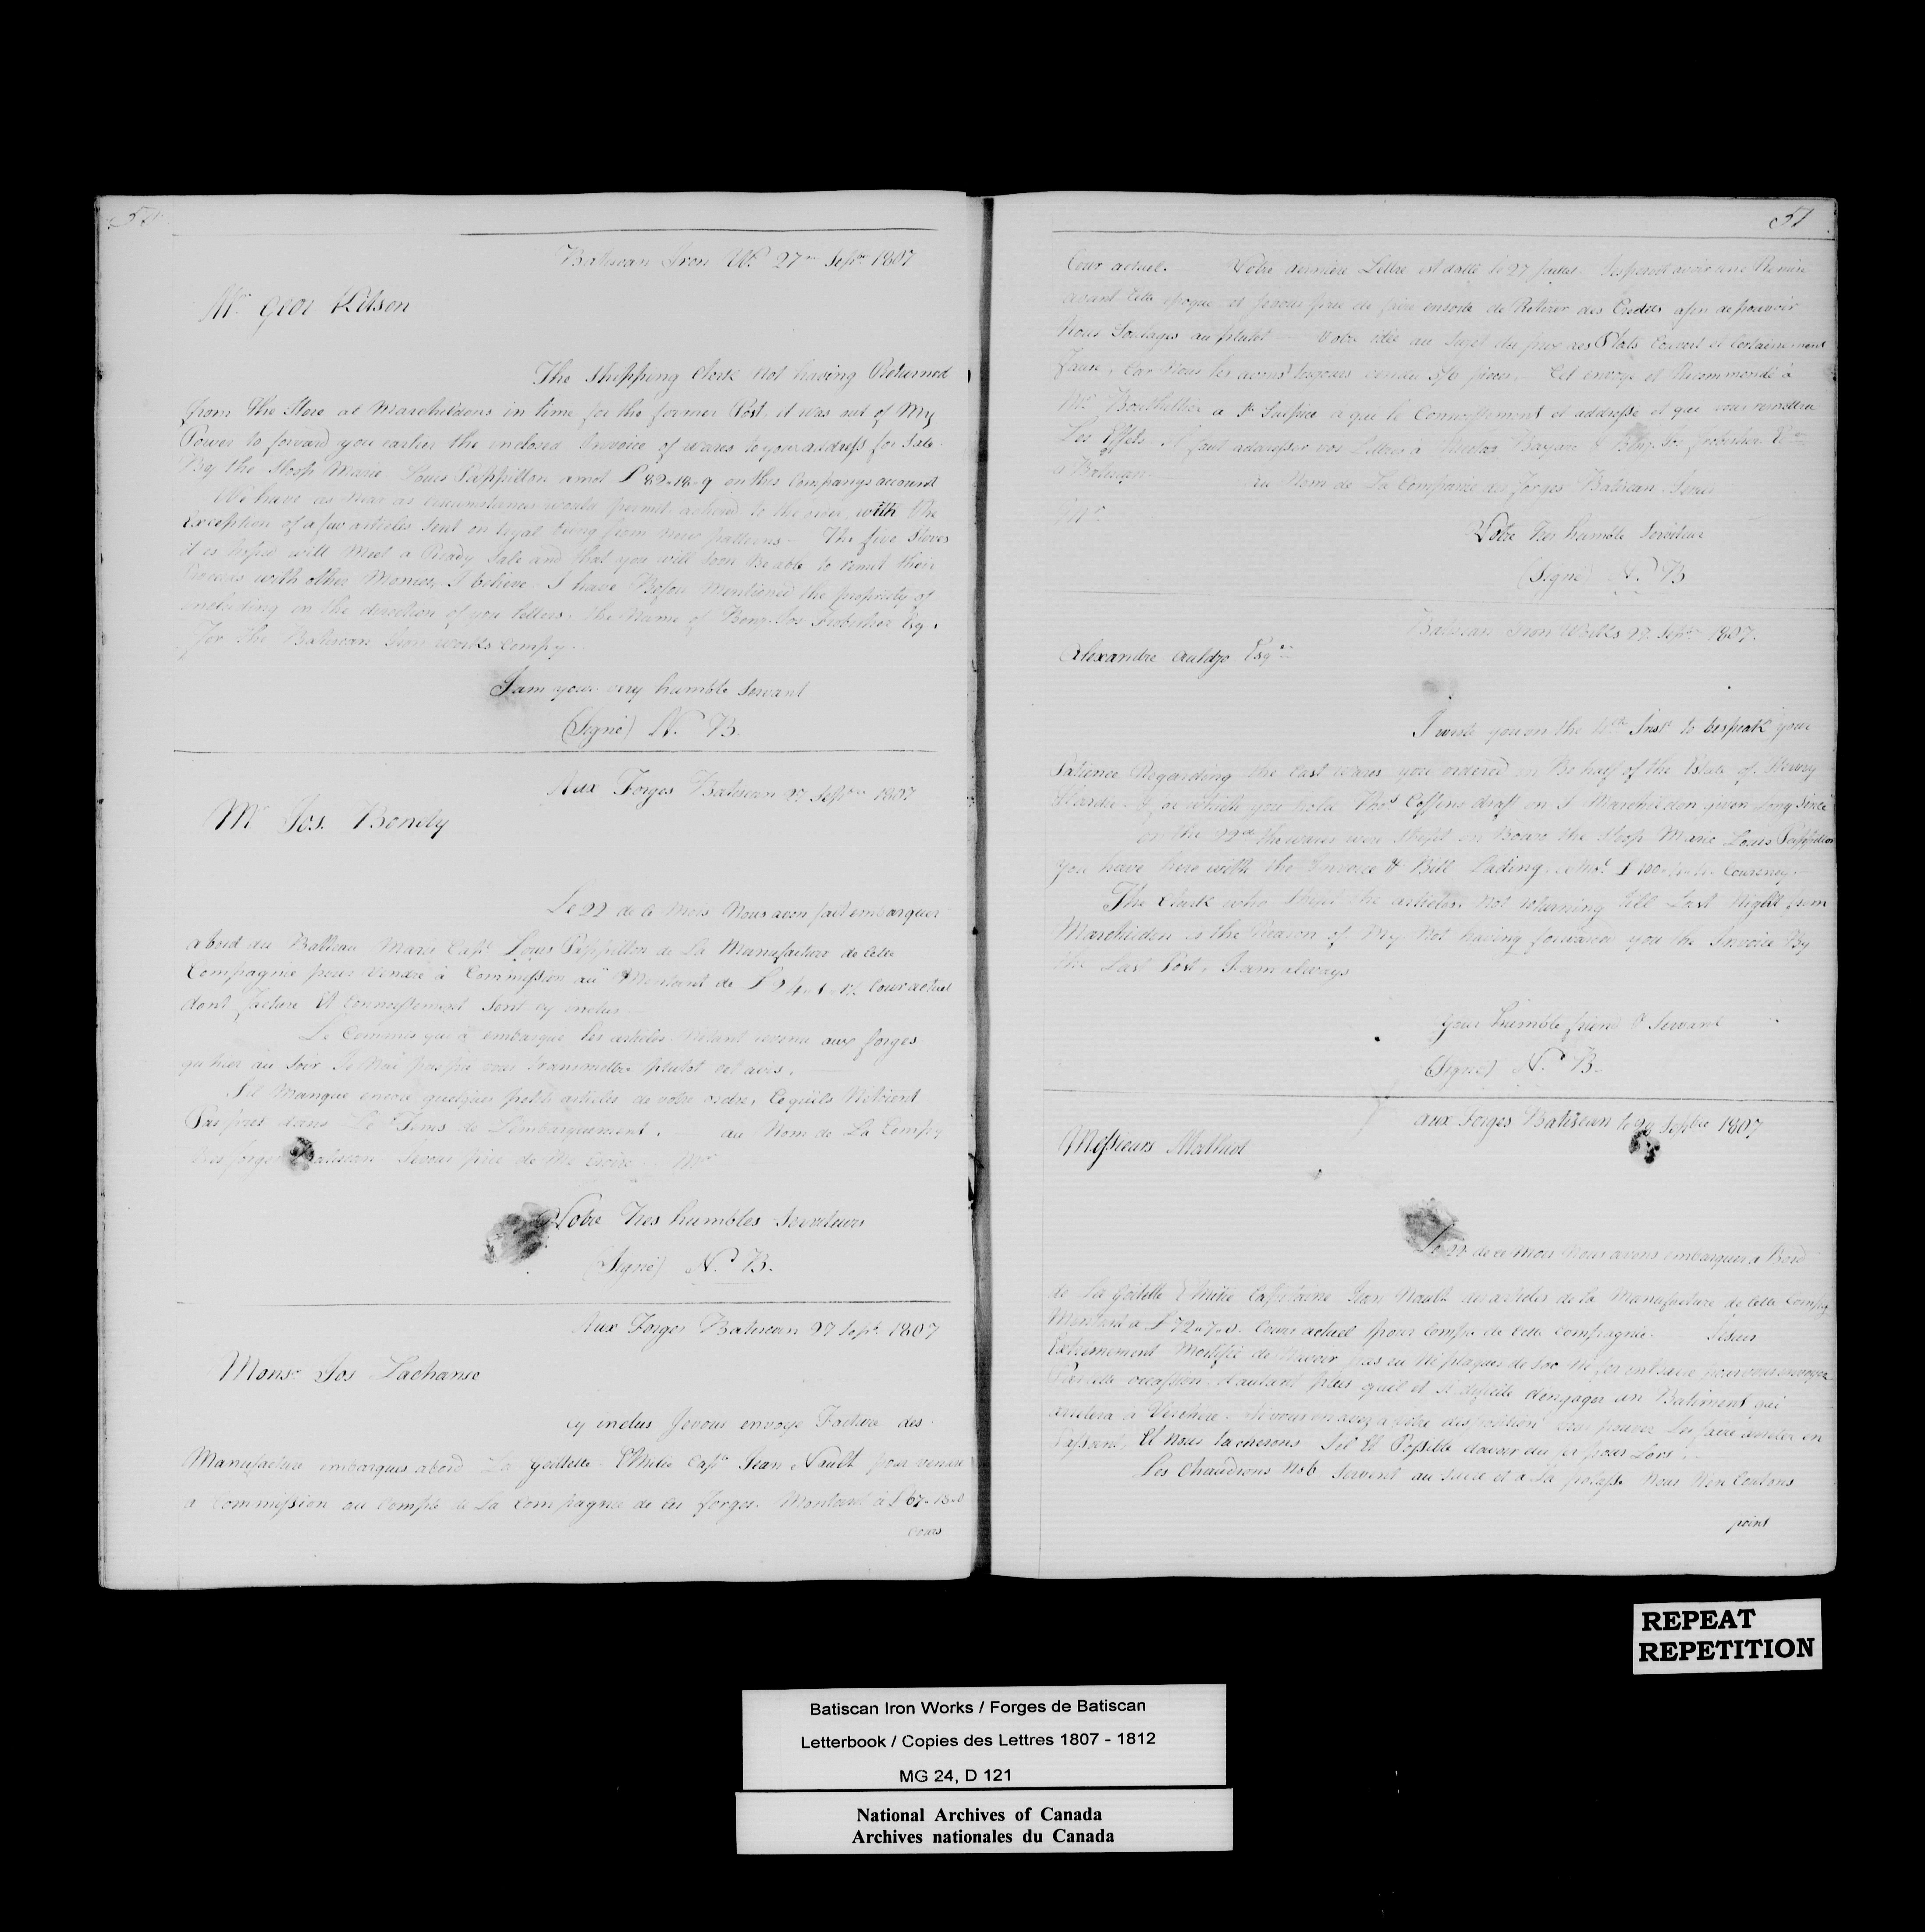 Batiscan Iron Wks 27th Septr 1807
Mr Geor Wilson
The Shipping Clerk not having Returned
from the Store at Marchildons in time for the former Post, it was out of My
Power to forward you earlier the inclosed Invoice of wares to your address for Sale
By the Sloop Marie Louis Pappillon amot £82-18-9 on this Companys account
We have as near as circumstances would permit adhered to the order, with the
Exception of a few articles sent on tryal being from new patterns — The five Stoves
it is hoped will Meet a Ready Sale and that you will soon Be able to remit their
Proceeds with other Monies, I believe I have Before Mentioned the propriety of
including in the direction of you letters, the Name of Benj. Jos Frobisher Esq.
For the Batiscan Iron works Compy.
I am your very humble Servant
(Signé) N. B.
Aux Forges Batiscan 27 Septre 1807
Mr Jos. Bondy
Le 22 de ce Mois Nous avon fait embarquer
abord du Batteau Marie Capt Louis Pappillon de La Manufacture de cette
Compagnie pour Vendre à Commission au Montant de £24-1- Cour actuel
dont facture Et connoissement Sont cy inclus —
Le Commis qui à embarqué les articles Nétant revenu aux forges
qu'hier au Soir Je N'ai pas pu vous transmettre plutot cet avis. —
Il Manque encore quelques petits articles de votre ordre, Ce quils N'étoient
Pas pret dans Le Tems de Lembarquement. — au Nom de La Compy
des forges Batiscan Jevous prie de Me Croire Mr
Votre Tres humbles Serviteurs
(Signé) N. B.
Aux Forges Batiscan 27 Sept. 1807
Monsr Jos Lachanse
cy inclus Jevous envoye Facture des
Manufacture embarques abord La Goillette Emilie Capt Jean Nault pour vendre
a Commission au Compte de La Compagnie de ces Forges. Montant à £67-13-0
Cours
57
Cour actuel. — Votre derniere Lettre est datté le 27 Juillet. Jesperois avoir une Remise
avant cette Epoque, et Jevous prie de faire ensorte de Retirer des Credits afin de pouvoir
Nous Soulager au plutot — Votre idée au Sujet du prix des Plats Couvert et Certainement
Fause, Car Nous les avons toujours vendu 5/6 piece. — Cet envoye et Recommendé à
Mr Bouthellier a qui le Connoissement et addressé et que vous remettra
Les Effets. Il faut addresser vos Lettres à Munro Bayard & Benj. Jos Frobisher
a Batiscan — Au Nom de La Compagnie des Forges Batiscan Jesuis
Mr.
Votre Tres humble Serviteur
(Signé) N. B
Batiscan Iron Works 27 Septr 1807.
Alexandre Auldjo Esqre
I wrote you on the Inst to bespeak your
Patience Regarding the Cast Wares you ordered in Behalf of the Estate of
& for which you hold Thos Coffins draft on J Marchildon given long Since
on the 22d the wares were Shipt on Board the Sloop Marie Louis Pappillion
you have here with the Invoice & Bill Lading. Currency —
The Clerk who Shipt the articles, not returning till Last Night from
Marchildon is the Reason of My Not having forwarded you the Invoice By
the Last Post. I am always
Your humble friend & Servant
(Signé) N. B.
aux Forges Batiscan le Septbre 1807
Messieurs Mathiot
Le 22 de ce Mois Nous avons embarquer a Bord
de La Goilette Emilie Capitaine Jean Nault des articles de la Manufacture de Cette Compy
Montant a £72-7-0. Cours actuel pour Compte de Cette Compagnie. Jesuis
Extremement Mortifié de Navoir pas eu Ni plaques de Soc Ni for en barre pour vous envoyer
Par cette occassion, d'autant plus quil et si dificile dengager un Batiment qui
arretera à Verchere. Si vous en avez a votre disposition vous pouvez Le faire arreter en
Passant, Et Nous tacherons Sil Et Possible davoir du fer pour Lors. —
Les Chaudrons No 6 Servent au Sucre et a La potasse Nous Nen Coulons
point
REPEAT
REPETITION
Batiscan Iron Works / Forges de Batiscan
Letterbook / Copies des Lettres 1807 - 1812
MG 24, D 121
National Archives of Canada
Archives nationales du Canada